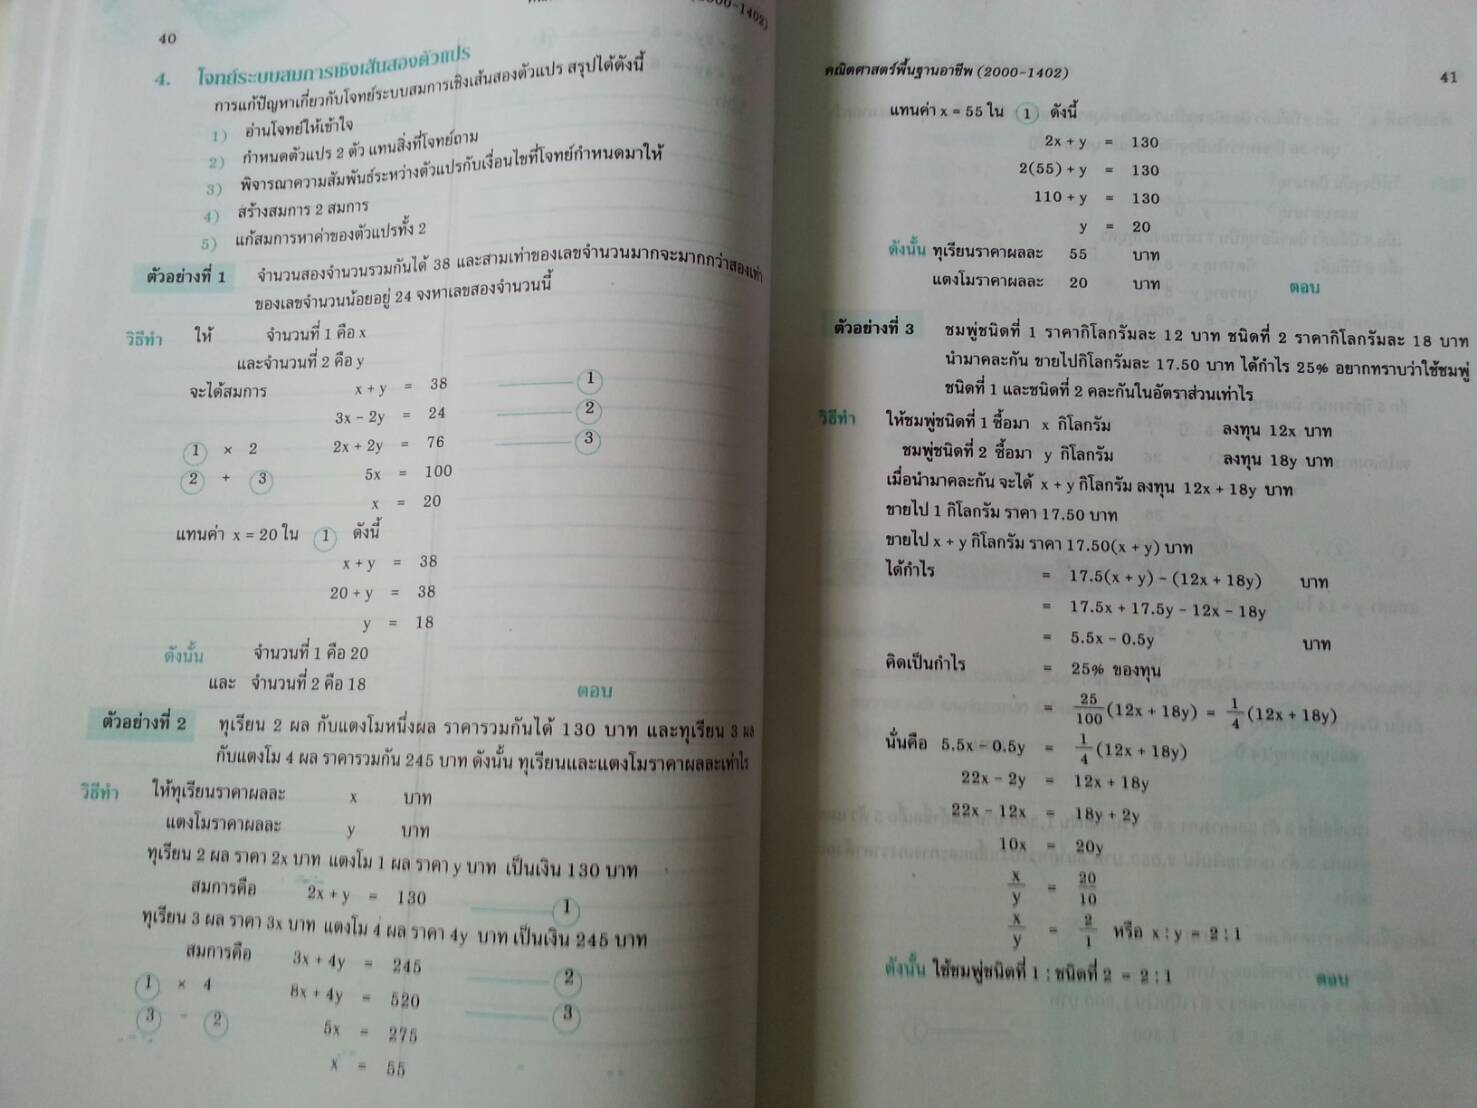 40
4. โจทย์ระบบสมการเชิงเส้นสองตัวแปร
การแก้ปัญหาเกี่ยวกับโจทย์ระบบสมการเชิงเส้นสองตัวแปร สรุปได้ดังนี้
1) อ่านโจทย์ให้เข้าใจ
2) กำหนดตัวแปร 2 ตัว แทนสิ่งที่โจทย์ถาม
3) พิจารณาความสัมพันธ์ระหว่างตัวแปรกับเงื่อนไขที่โจทย์กำหนดมาให้
4) สร้างสมการ 2 สมการ
5) แก้สมการหาค่าของตัวแปรทั้ง 2
ตัวอย่างที่ 1 จำนวนสองจำนวนรวมกันได้ 38 และสามเท่าของเลขจำนวนมากจะมากกว่าสองเท่า
ของเลขจำนวนน้อยอยู่ 24 จงหาเลขสองจำนวนนี้
วิธีทำ ให้ จำนวนที่ 1 คือ x
และจำนวนที่ 2 คือ y
จะได้สมการ x + y = 38 ——— ①
3x – 2y = 24 ——— ②
① × 2 2x + 2y = 76 ——— ③
② + ③ 5x = 100
x = 20
แทนค่า x = 20 ใน ① ดังนี้
x + y = 38
20 + y = 38
y = 18
ดังนั้น จำนวนที่ 1 คือ 20
และ จำนวนที่ 2 คือ 18 ตอบ
ตัวอย่างที่ 2 ทุเรียน 2 ผล กับแตงโมหนึ่งผล ราคารวมกันได้ 130 บาท และทุเรียน 3 ผล
กับแตงโม 4 ผล ราคารวมกัน 245 บาท ดังนั้น ทุเรียนและแตงโมราคาผลละเท่าไร
วิธีทำ ให้ทุเรียนราคาผลละ x บาท
แตงโมราคาผลละ y บาท
ทุเรียน 2 ผล ราคา 2x บาท แตงโม 1 ผล ราคา y บาท เป็นเงิน 130 บาท
สมการคือ 2x + y = 130 ——— ①
ทุเรียน 3 ผล ราคา 3x บาท แตงโม 4 ผล ราคา 4y บาท เป็นเงิน 245 บาท
สมการคือ 3x + 4y = 245 ——— ②
① × 4 8x + 4y = 520 ——— ③
③ – ② 5x = 275
x = 55
คณิตศาสตร์พื้นฐานอาชีพ (2000-1402) 41
แทนค่า x = 55 ใน ① ดังนี้
2x + y = 130
2(55) + y = 130
110 + y = 130
y = 20
ดังนั้น ทุเรียนราคาผลละ 55 บาท
แตงโมราคาผลละ 20 บาท ตอบ
ตัวอย่างที่ 3 ชมพู่ชนิดที่ 1 ราคากิโลกรัมละ 12 บาท ชนิดที่ 2 ราคากิโลกรัมละ 18 บาท
นำมาคละกัน ขายไปกิโลกรัมละ 17.50 บาท ได้กำไร 25% อยากทราบว่าใช้ชมพู่
ชนิดที่ 1 และชนิดที่ 2 คละกันในอัตราส่วนเท่าไร
วิธีทำ ให้ชมพู่ชนิดที่ 1 ซื้อมา x กิโลกรัม ลงทุน 12x บาท
ชมพู่ชนิดที่ 2 ซื้อมา y กิโลกรัม ลงทุน 18y บาท
เมื่อนำมาคละกัน จะได้ x + y กิโลกรัม ลงทุน 12x + 18y บาท
ขายไป 1 กิโลกรัม ราคา 17.50 บาท
ขายไป x + y กิโลกรัม ราคา 17.50(x + y) บาท
ได้กำไร = 17.5(x + y) – (12x + 18y) บาท
= 17.5x + 17.5y – 12x – 18y
= 5.5x – 0.5y บาท
คิดเป็นกำไร = 25% ของทุน
= 25/100 (12x + 18y) = 1/4 (12x + 18y)
นั่นคือ 5.5x – 0.5y = 1/4 (12x + 18y)
22x – 2y = 12x + 18y
22x – 12x = 18y + 2y
10x = 20y
x/y = 20/10
x/y = 2/1 หรือ x : y = 2 : 1
ดังนั้น ใช้ชมพู่ชนิดที่ 1 : ชนิดที่ 2 = 2 : 1 ตอบ